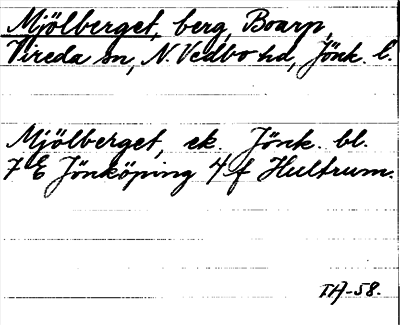 Mjölberget, berg, Boarp,
Vireda sn, N. Vedbo hd, Jönk. l.
Mjölberget, ek. Jönk. bl.
7 E Jönköping 4 f Hultrum.
TH-58.